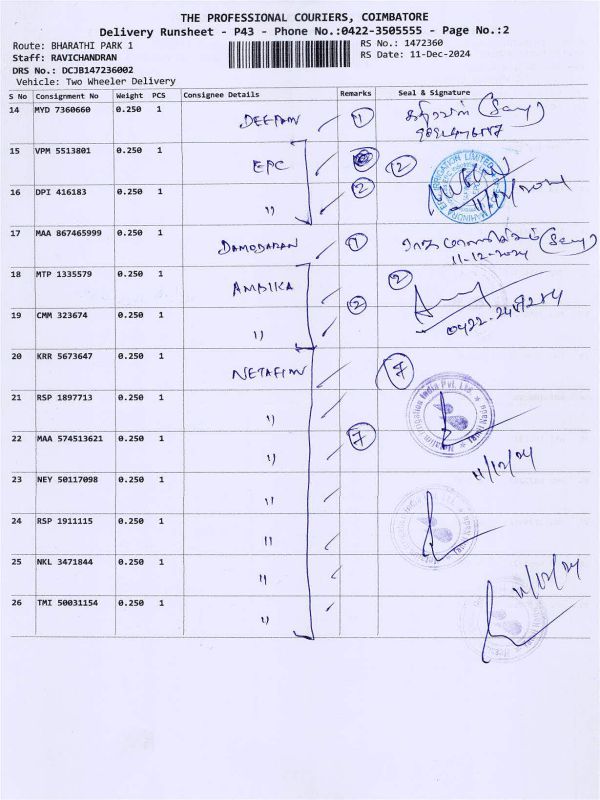 THE PROFESSIONAL COURIERS, COIMBATORE
Delivery Runsheet - P43 - Phone No.:0422-3505555 - Page No.:2
Route: BHARATHI PARK 1 RS No.: 1472360
Staff: RAVICHANDRAN RS Date: 11-Dec-2024
DRS No.: DCJB147236002
Vehicle: Two Wheeler Delivery
S No Consignment No Weight PCS Consignee Details Remarks Seal & Signature
14 MYD 7360660 0.250 1 DEEPAM 1
15 VPM 5513801 0.250 1 EPC 2
16 DPI 416183 0.250 1 " 2
17 MAA 867465999 0.250 1 DAMODARAN 1
11-12-2024
18 MTP 1335579 0.250 1 AMBIKA 2
19 CMM 323674 0.250 1 " 2
20 KRR 5673647 0.250 1 NETAFIM 7
21 RSP 1897713 0.250 1 "
22 MAA 574513621 0.250 1 " 7
11/12/24
23 NEY 50117098 0.250 1 "
24 RSP 1911115 0.250 1 "
25 NKL 3471844 0.250 1 "
11/12/24
26 TMI 50031154 0.250 1 "